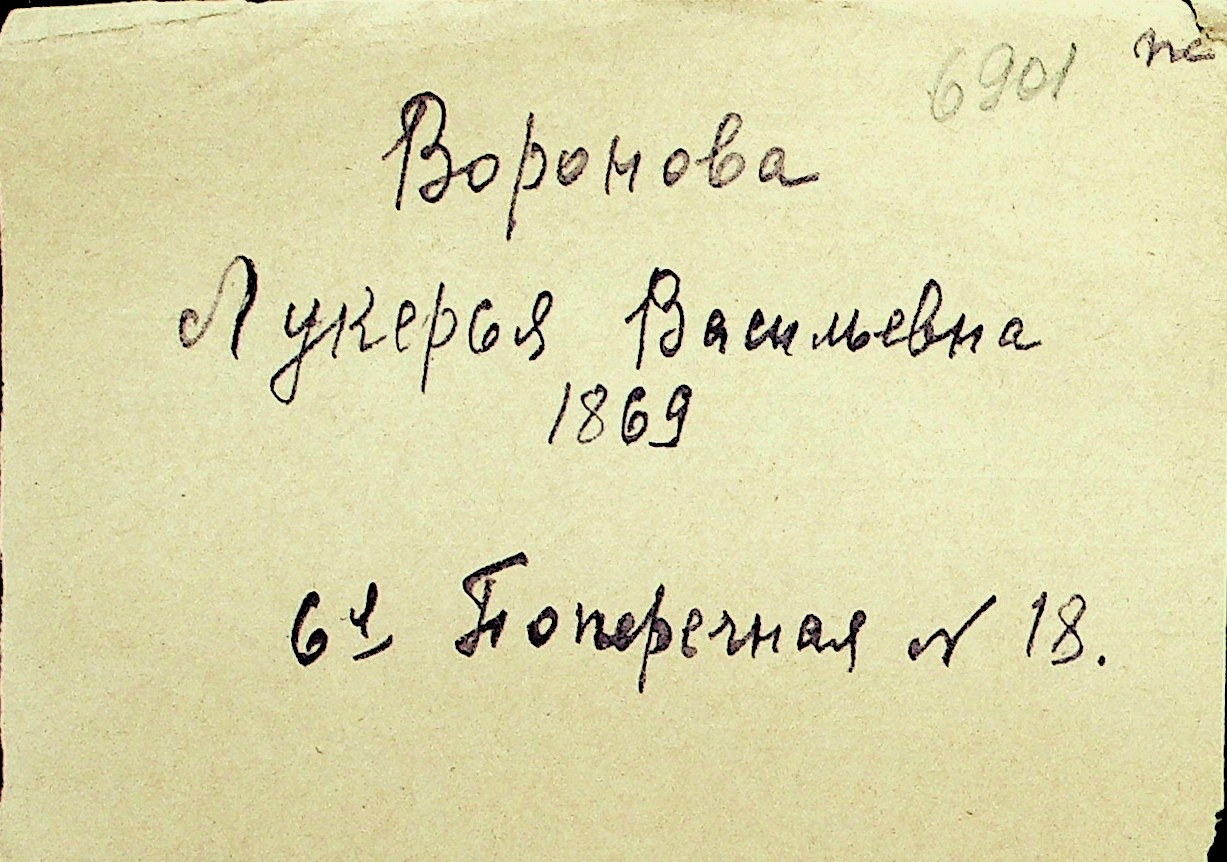 6901 пс
Воронова
Лукерья Васильевна
1869
6я Поперечная N 18.